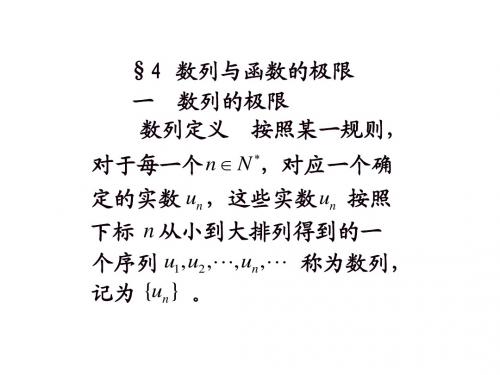 §4 数列与函数的极限
一 数列的极限
数列定义 按照某一规则，
对于每一个 n ∈ N*，对应一个确
定的实数 uₙ，这些实数 uₙ 按照
下标 n 从小到大排列得到的一
个序列 u₁,u₂,⋯,uₙ,⋯ 称为数列，
记为 {uₙ} 。